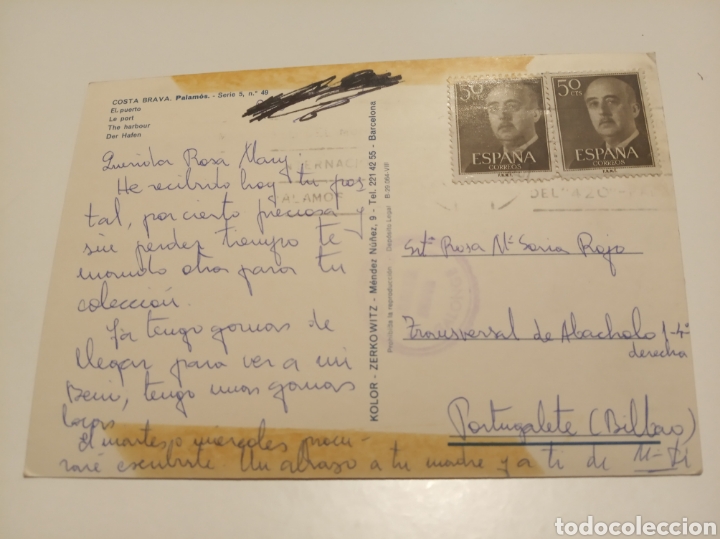 COSTA BRAVA. Palamós. - Serie 5, n.° 49
El puerto
Le port
The harbour
Der Hafen
Querida Rosa Mary:
He recibido hoy tu pos
tal, por cierto preciosa y
sin perder tiempo te
mando otra para tu
colección.
Ya tengo ganas de
llegar para ver a mi
Beni, tengo unas ganas
locas
El martes o miércoles procu-
raré escribirte Un abrazo a tu madre y a ti de
KOLOR - ZERKOWITZ - Méndez Núñez, 9 - Tel. 221 42 55 - Barcelona
Prohibida la reproducción Depósito Legal B-20.084-VIII
50 cts
ESPAÑA
CORREOS
50 cts
ESPAÑA
CORREOS
Srta Rosa Mª Soria Rojo
Transversal de Abacholo 1-4º
derecha
Portugalete (Bilbao)
todocoleccion